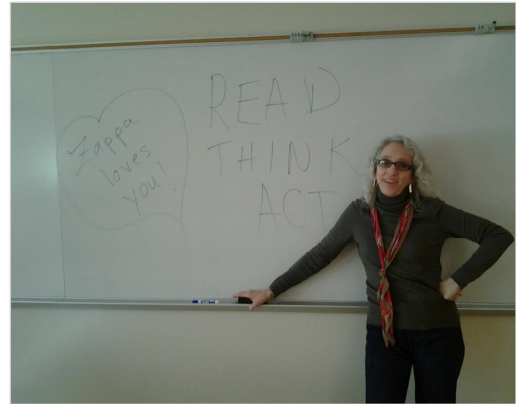 Zappa
loves
you!
READ
THINK
ACT